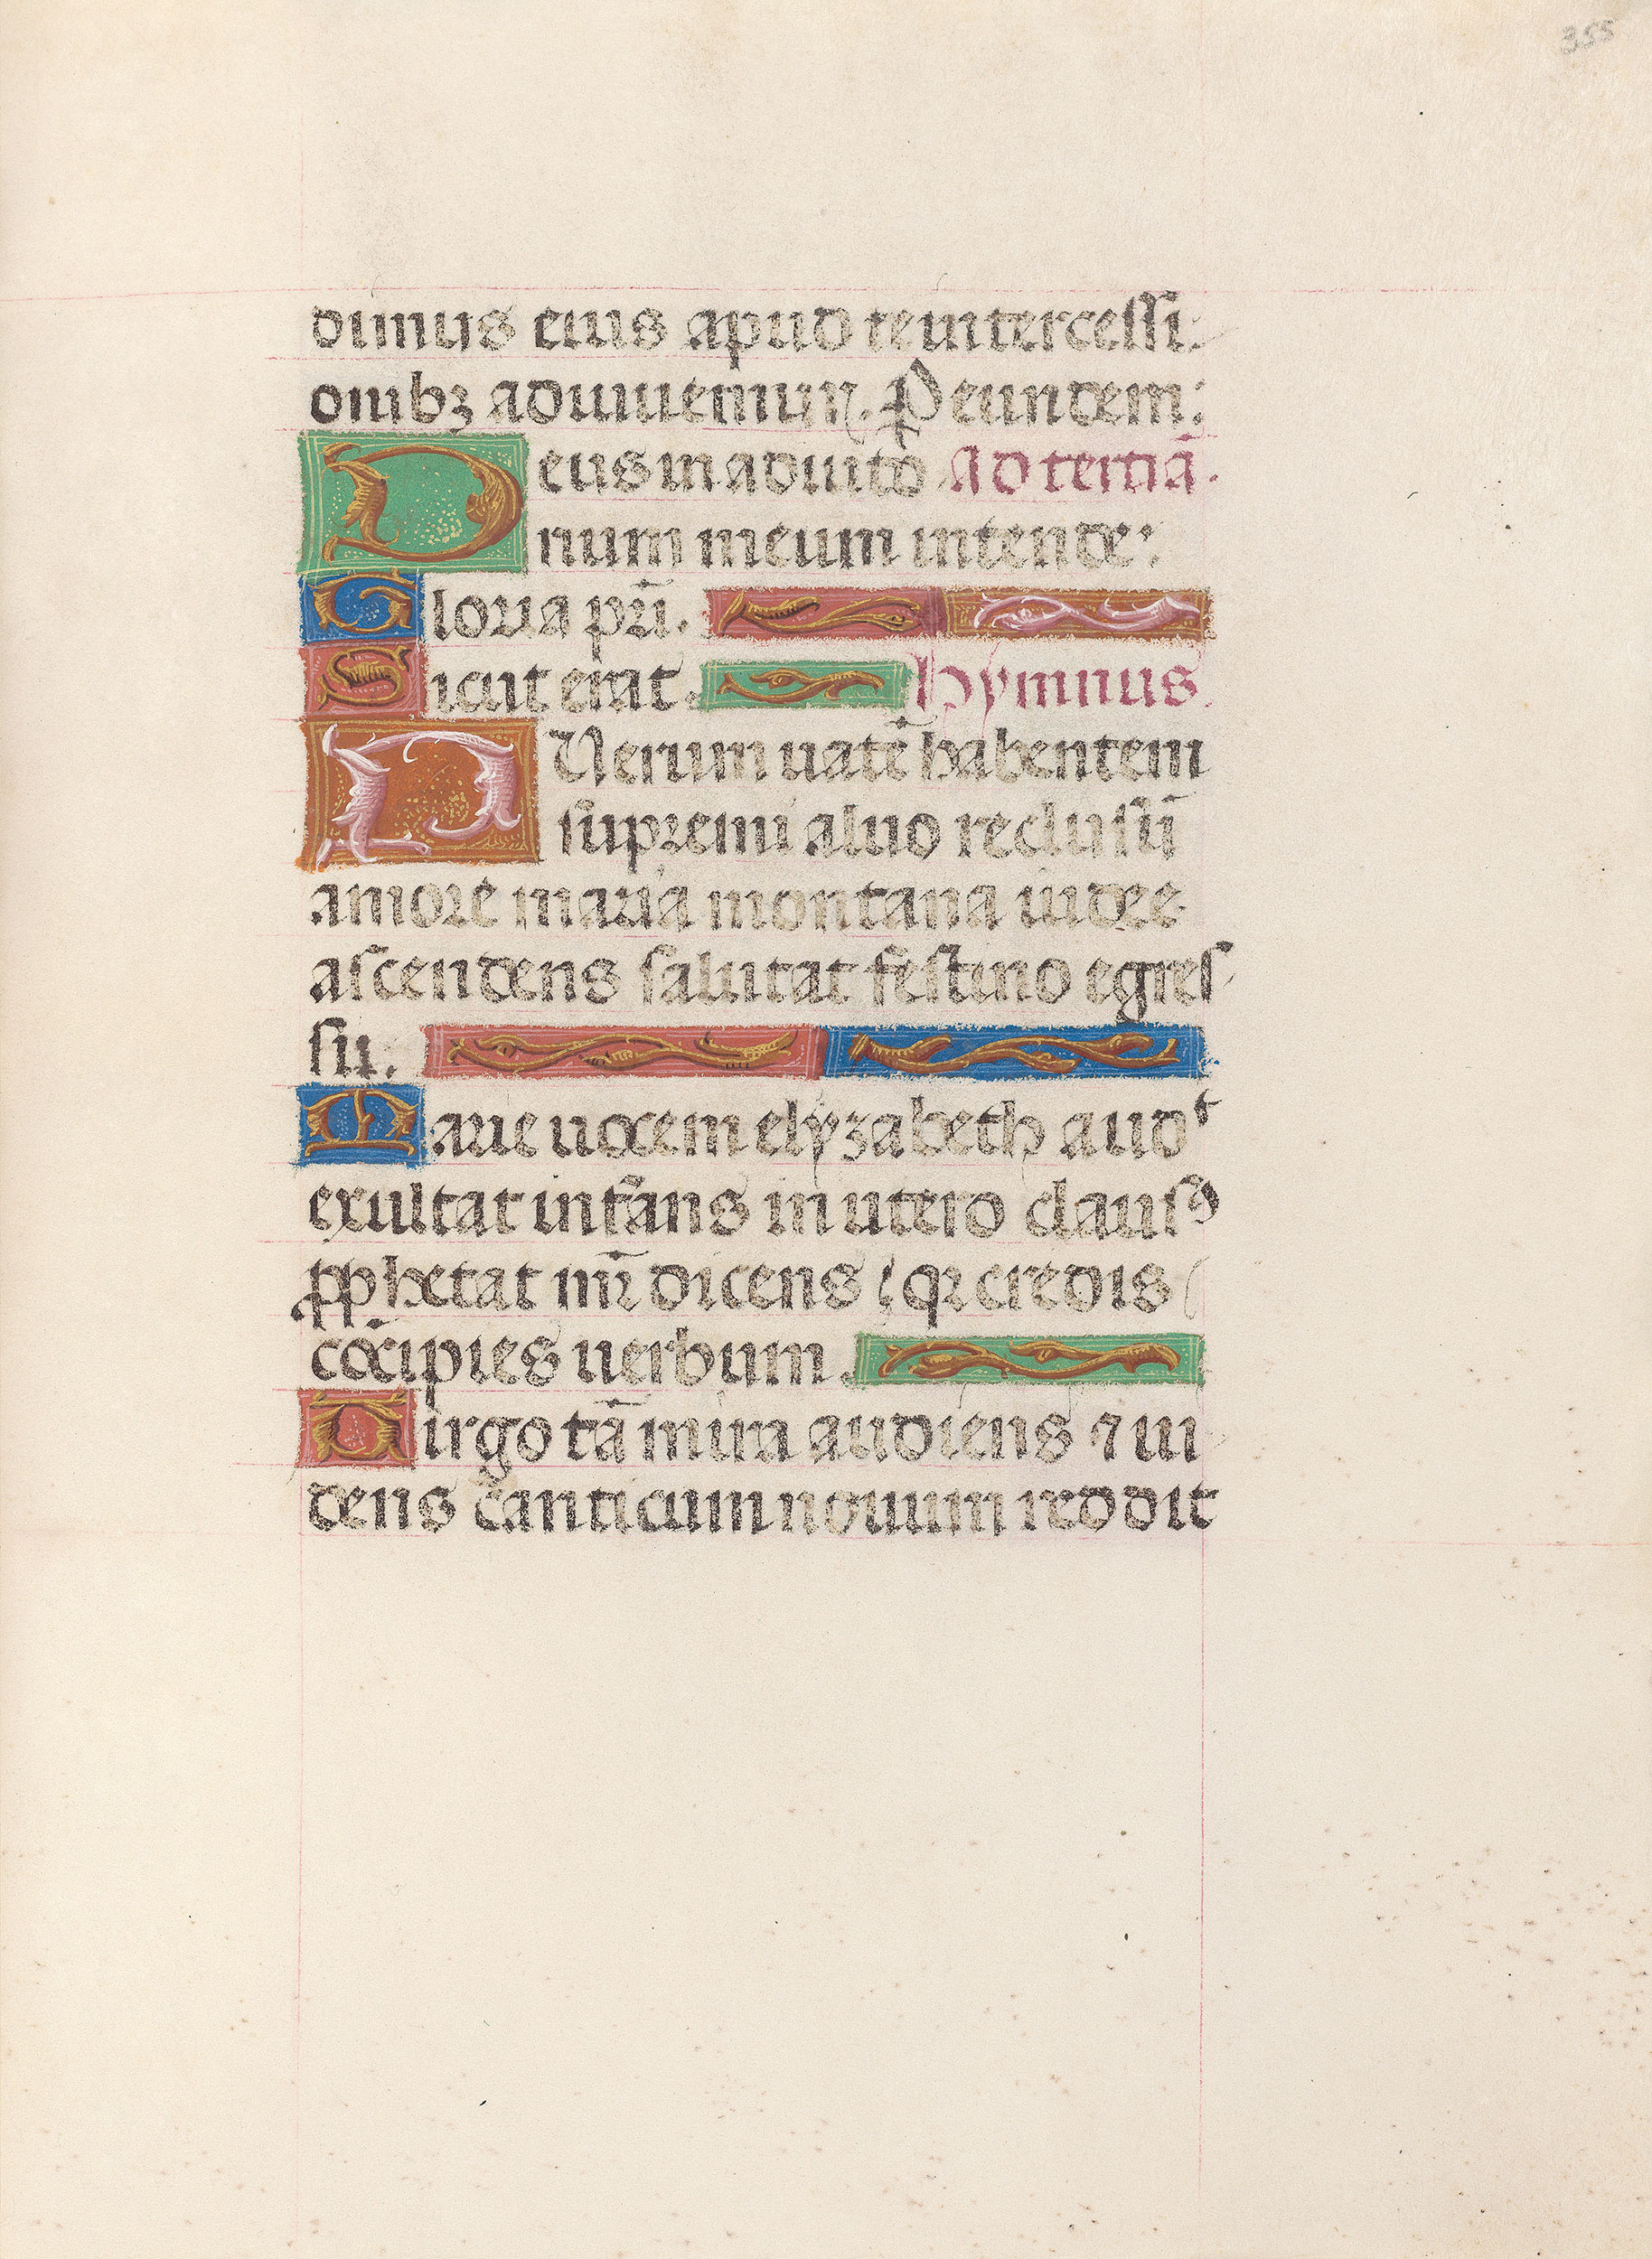 355
dimus eius apud te intercessi
onibꝫ adiuuemur. Ꝑ eundem:
Deus in adiuto Ad tertiā.
rium meum intende:
Gloria pr̄i.
Sicut erat. Hymnus
Puerum uatē habentem
supremi aluo reclusū
amore maria montana iudee
ascendens salutat festino egres
su.
Matre uocem elyzabeth audᵗ
exultat infans in utero clausꝰ
ꝓphetat mr̄ dicens qꝛ credis
cōcipies uerbum.
Virgo tā mira audiens ⁊ ui
dens canticum nouum reddit